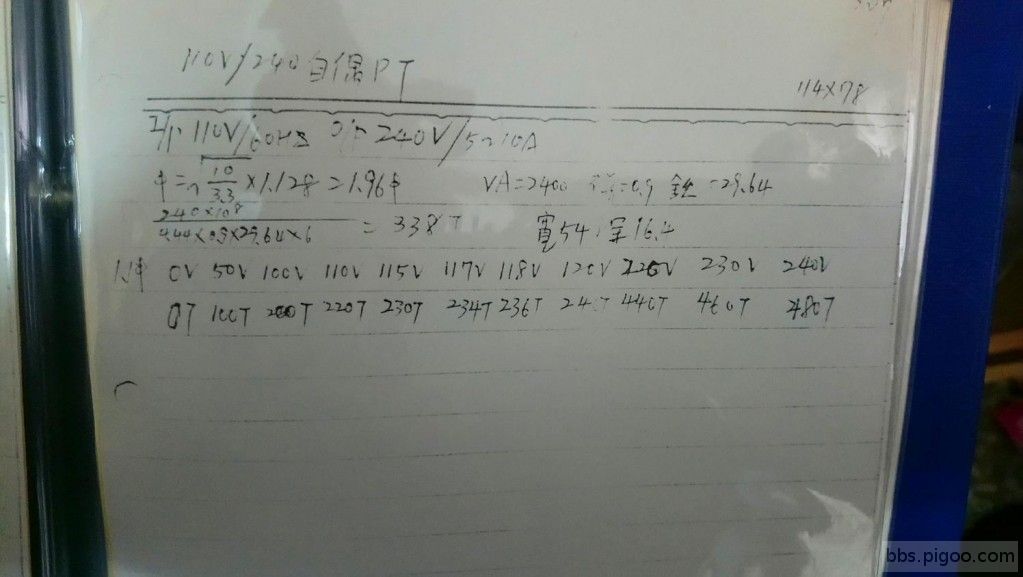 110V/240自偶PT
114×78
I/P 110V/60HZ O/P 240V/5~10A
φ=√10/3.3 ×1.128=1.96φ VA=2400 =0.9 =29.64
240×10⁸/4.44×0.9×29.64×6 = 338T 寬54,
0V 50V 100V 110V 115V 117V 118V 120V 220V 230V 240V
0T 100T 200T 220T 230T 234T 236T 240T 440T 460T 480T
bbs.pigoo.com